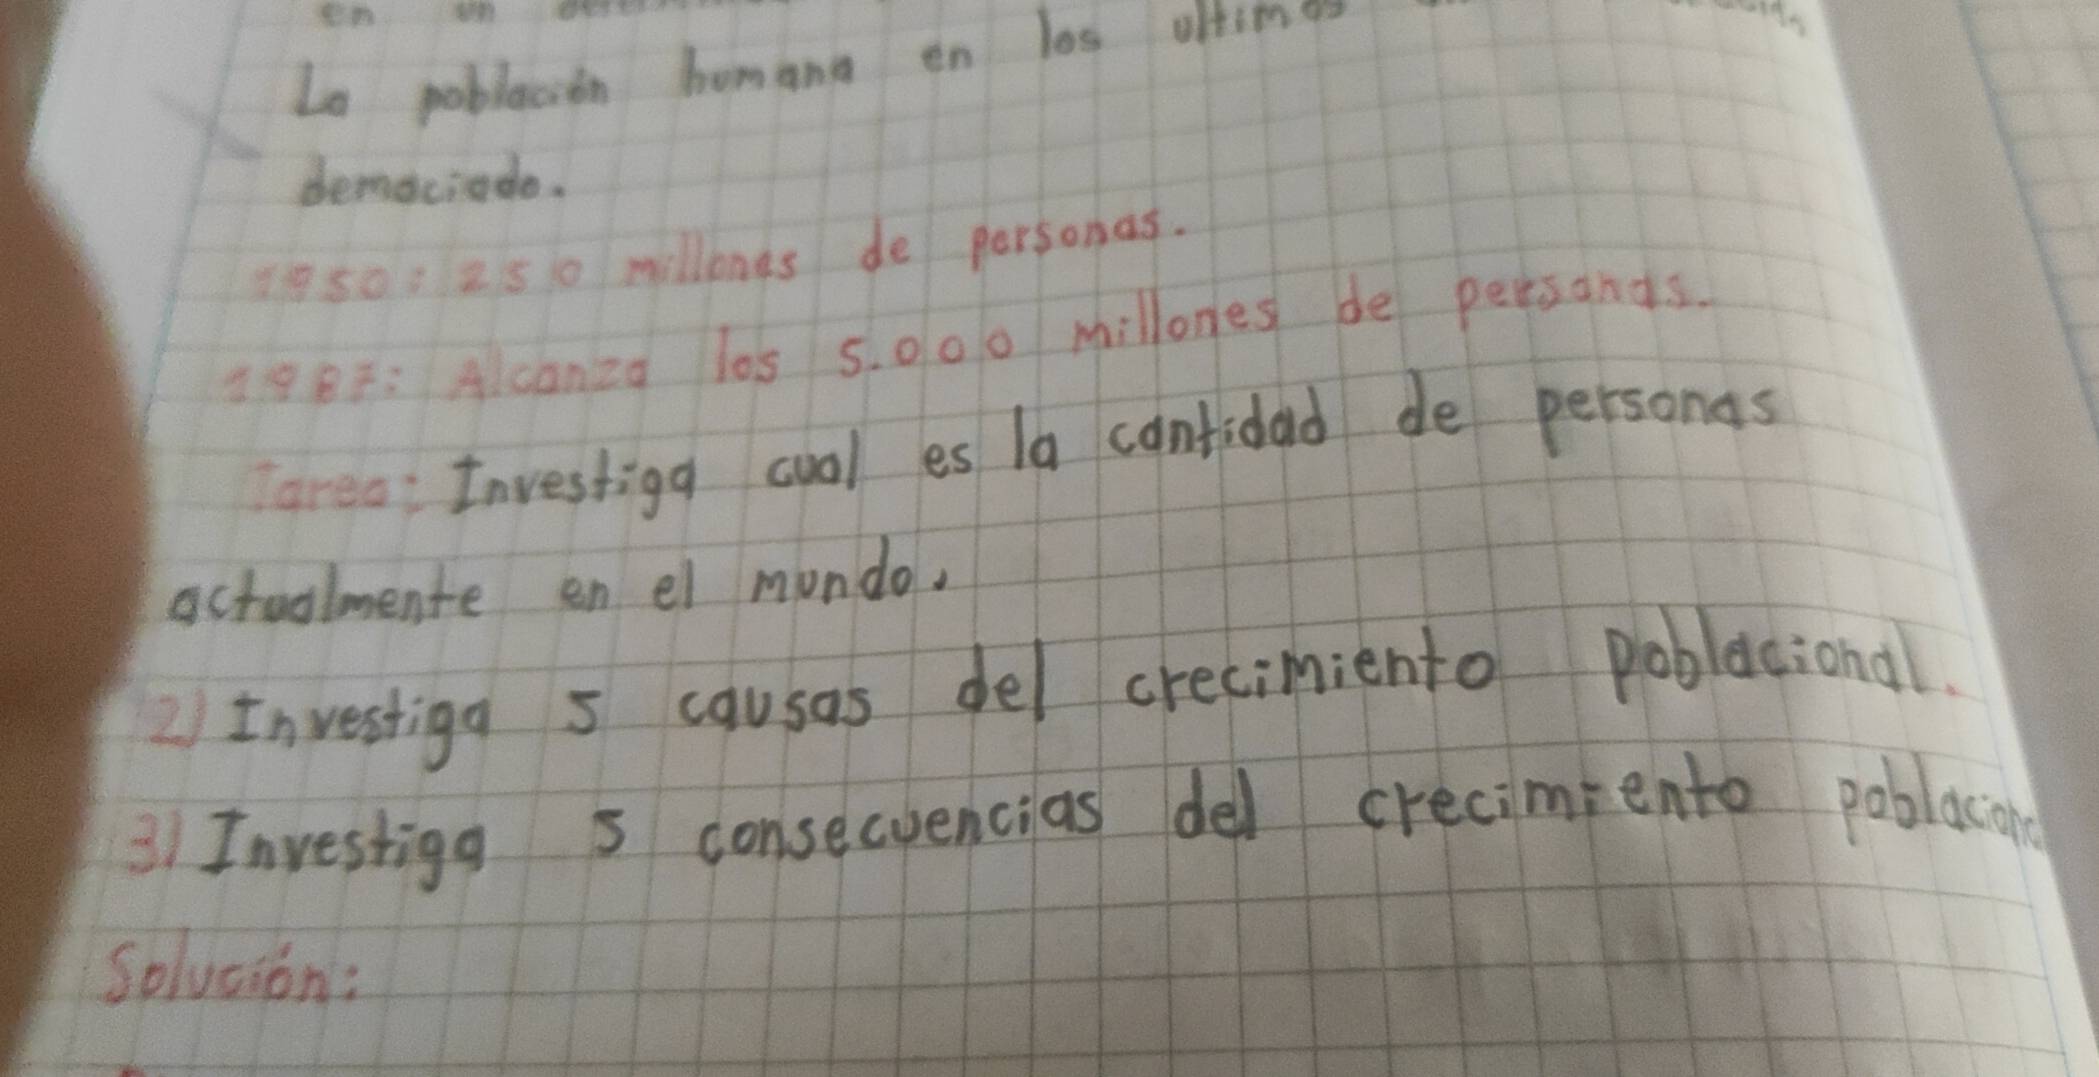 en un
La población humana en los ultimos
demaciado.
1950: 250 millones de personas.
1987: Alcanza los 5.000 millones de personas.
Tarea: Investiga cual es la cantidad de personas
actualmente en el mundo.
2) Investiga 5 causas del crecimiento poblacional.
3) Investiga 5 consecuencias del crecimiento poblacional
Solución: